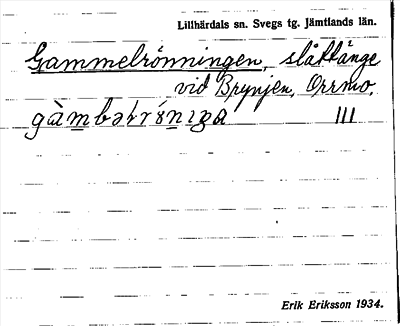 Lillhärdals sn. Svegs tg. Jämtlands län.
Gammelrönningen, slåttänge
vid Brynjen, Orrmo.
III
Erik Eriksson 1934.